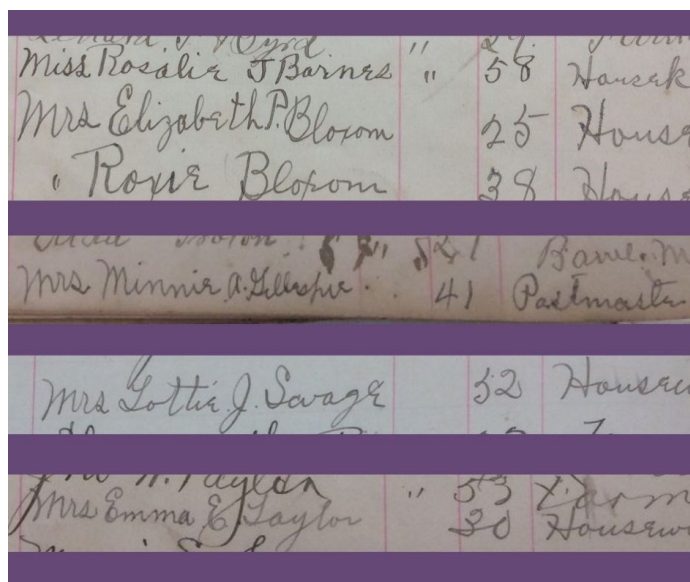 Miss Rosalie J Barnes " 58 Housek
Mrs Elizabeth P. Bloxom 25 House
" Roxie Bloxom 38 House
Mrs Minnie A. Gillespie . . 41 Postmaste
Mrs Lottie J. Savage 52 Housew
W. Taylor " 53 Farm
Mrs Emma E Taylor 30 Housew